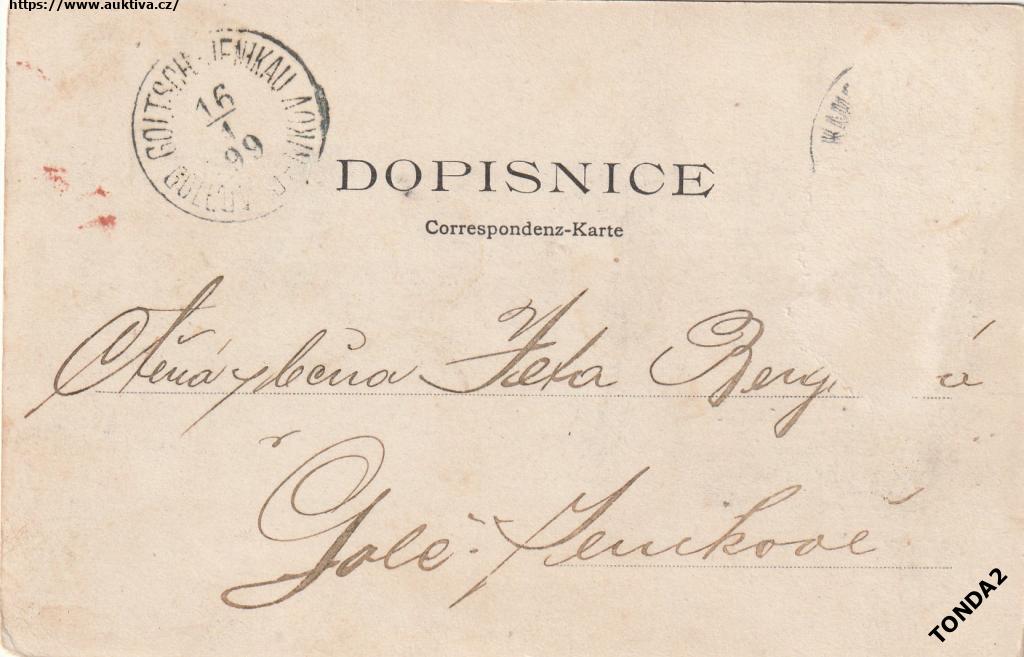 https://www.auktiva.cz/
GOLTSCH-JENIKAU
16/1 99
DOPISNICE
Correspondenz-Karte
Ctěná slečna Ireta Berg á
v
Golč. Jeníkově
TONDA2